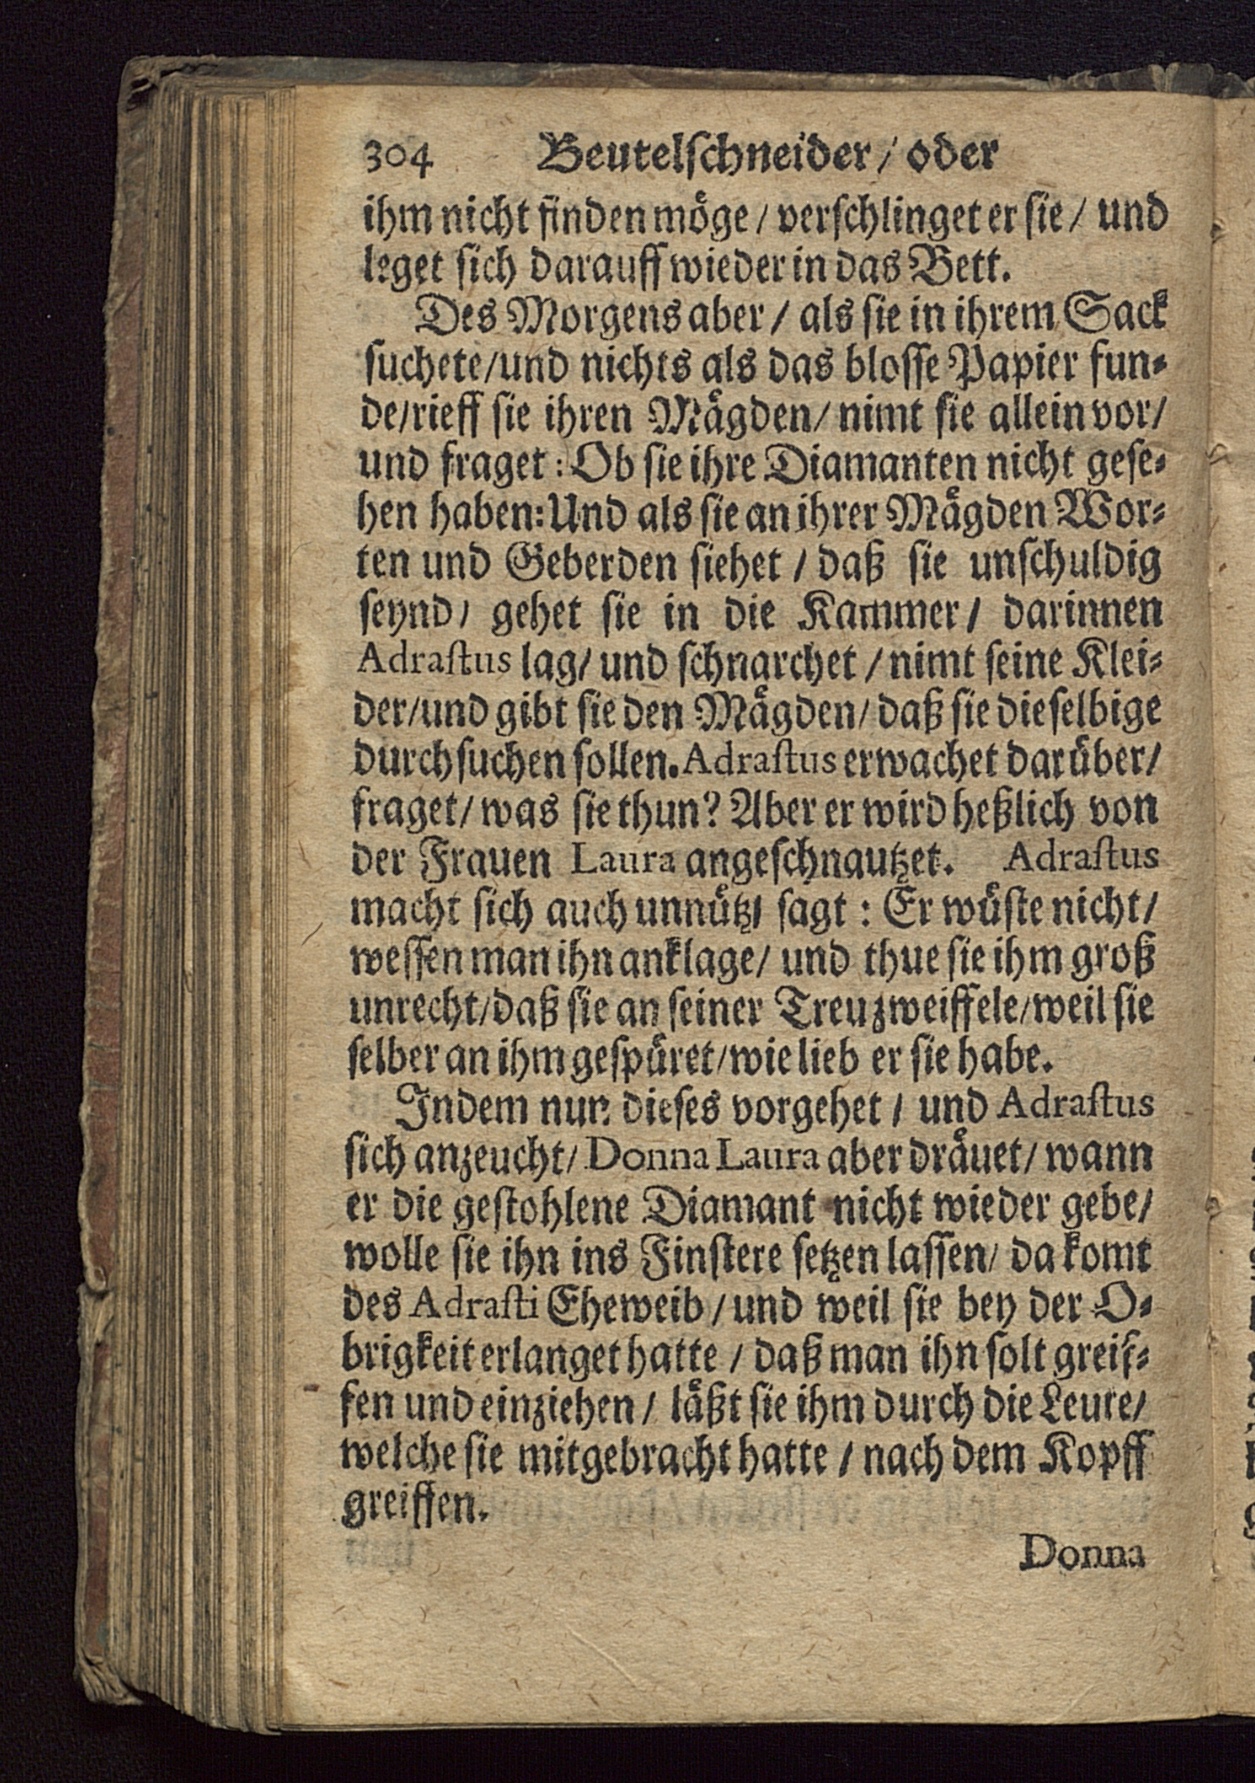 304 Beutelſchneider/ oder
ihm nicht finden möge/ verſchlinget er ſie/ und
leget ſich darauff wieder in das Bett.
Des Morgens aber/ als ſie in ihrem Sack
ſuchete/und nichts als das bloſſe Papier fun-
de/rieff ſie ihren Mägden/ nimt ſie allein vor/
und fraget: Ob ſie ihre Diamanten nicht geſe-
hen haben: Und als ſie an ihrer Mägden Wor-
ten und Geberden ſiehet/ daß ſie unſchuldig
ſeynd/ gehet ſie in die Kammer/ darinnen
Adraſtus lag/ und ſchnarchet/ nimt ſeine Klei-
der/und gibt ſie den Mägden/ daß ſie dieſelbige
durchſuchen ſollen. Adraſtus erwachet darüber/
fraget/ was ſie thun? Aber er wird heßlich von
der Frauen Laura angeſchnautzet. Adraſtus
macht ſich auch unnütz/ ſagt: Er wüſte nicht/
weſſen man ihn anklage/ und thue ſie ihm groß
unrecht/daß ſie an ſeiner Treu zweiffele/weil ſie
ſelber an ihm geſpüret/wie lieb er ſie habe.
Indem nun dieſes vorgehet/ und Adraſtus
ſich anzeucht/ Donna Laura aber dräuet/ wann
er die geſtohlene Diamant nicht wieder gebe/
wolle ſie ihn ins Finſtere ſetzen laſſen/ da komt
des Adraſti Eheweib/ und weil ſie bey der O-
brigkeit erlanget hatte/ daß man ihn ſolt greif-
fen und einziehen/ läßt ſie ihm durch die Leute/
welche ſie mitgebracht hatte/ nach dem Kopff
greiffen.
Donna